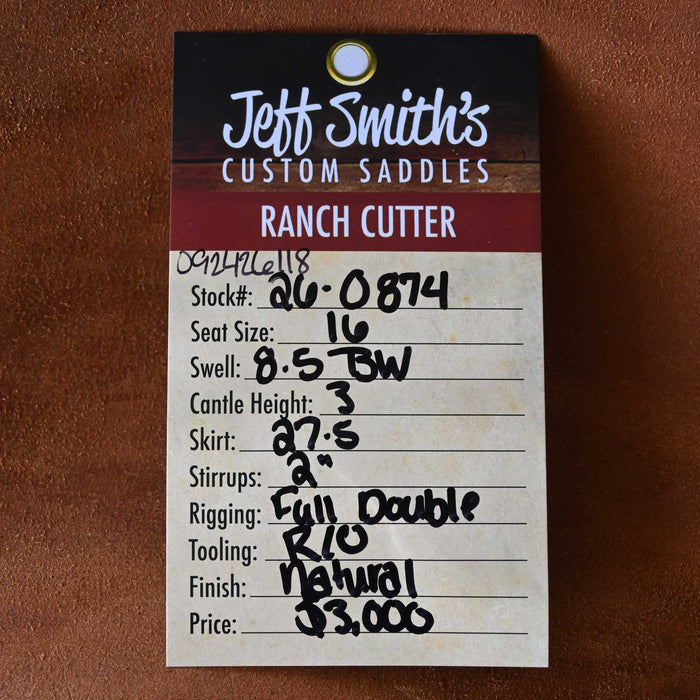 Jeff Smith's
CUSTOM SADDLES
RANCH CUTTER
092426118
Stock#: 26-0874
Seat Size: 16
Swell: 8.5 BW
Cantle Height: 3
Skirt: 27.5
Stirrups: 2"
Rigging: Full Double
Tooling: R/O
Finish: Natural
Price: $3,000